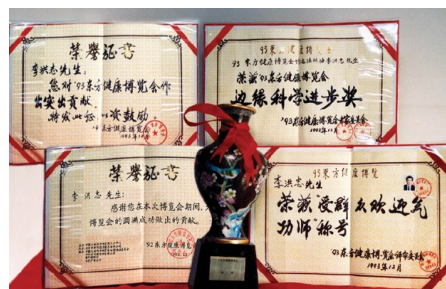 荣誉证书
李洪志先生:
您对'93东方健康博览会作
出突出贡献,
特发此证 以资鼓励
'93东方健康博览会
1993年12月
93东方健康博览会
李洪志先生
荣获'93东方健康博览会
边缘科学进步奖
'93东方健康博览会评审委员会
1993年12月
荣誉证书
李洪志先生:
感谢您在本次博览会期间,
博览会的圆满成功做出的贡献。
'92东方健康博览
93东方健康博览
李洪志先生
荣获受群众欢迎气
功师"称号
'93东方健康博览会评审委员会
1993年12月